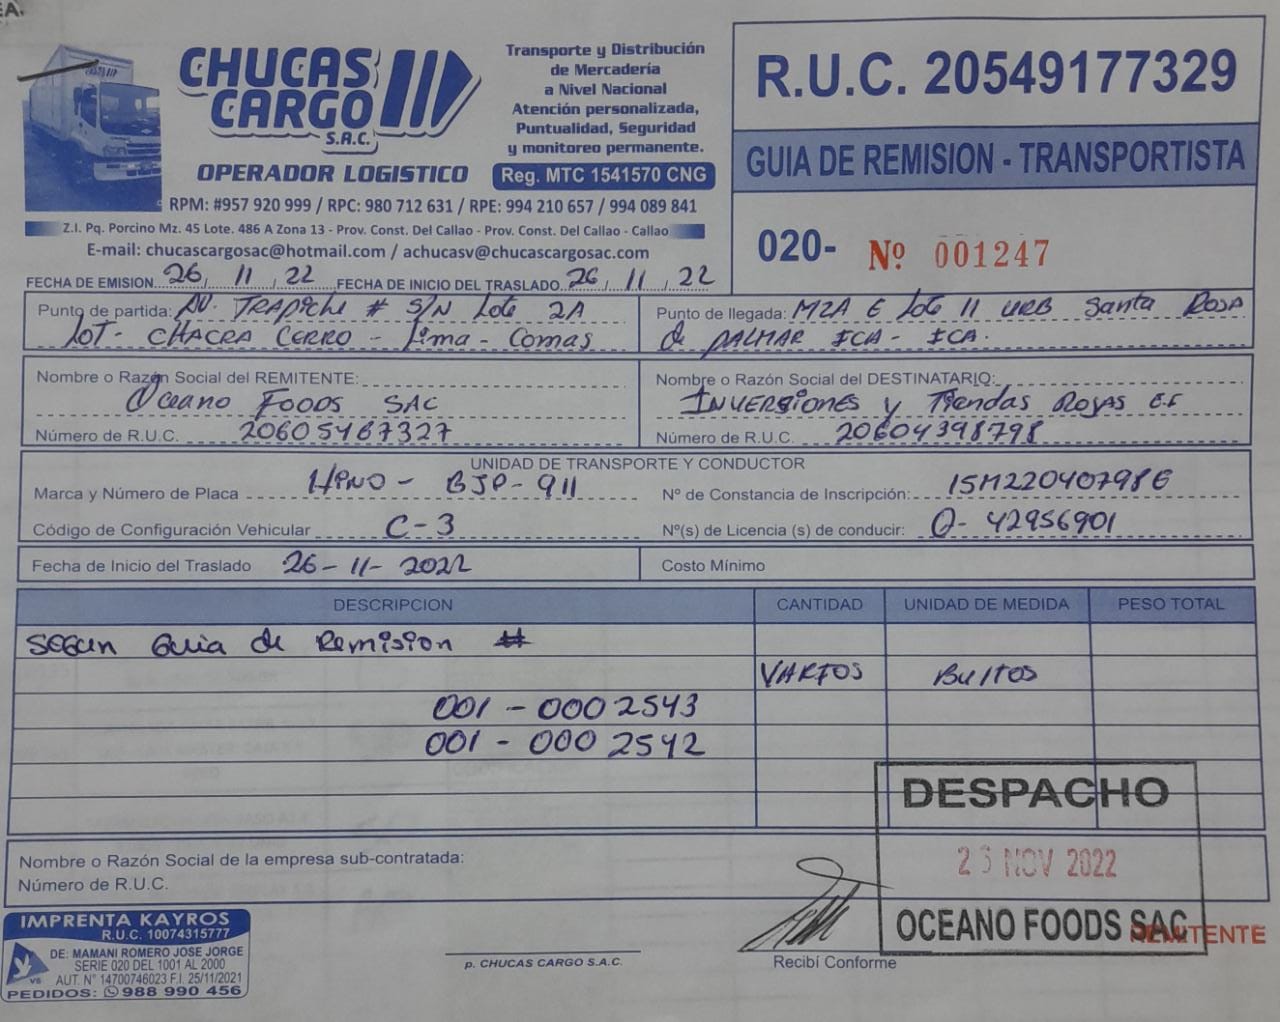 EA.
CHUCAS
CARGO
S.A.C.
OPERADOR LOGISTICO
Transporte y Distribución
de Mercadería
a Nivel Nacional
Atención personalizada,
Puntualidad, Seguridad
y monitoreo permanente.
Reg. MTC 1541570 CNG
RPM: #957 920 999 / RPC: 980 712 631 / RPE: 994 210 657 / 994 089 841
Z.I. Pq. Porcino Mz. 45 Lote. 486 A Zona 13 - Prov. Const. Del Callao - Prov. Const. Del Callao - Callao
E-mail: chucascargosac@hotmail.com / achucasv@chucascargosac.com
R.U.C. 20549177329
GUIA DE REMISION - TRANSPORTISTA
020- Nº 001247
FECHA DE EMISION 26 / 11 / 22 FECHA DE INICIO DEL TRASLADO 26 / 11 / 22
Punto de partida: AV. TRAPiche # S/N Lote 2A
Lot- CHACRA CERRO - Lima - Comas
Punto de llegada: MZA E Lote 11 URB Santa Rosa
de PALMAR ICA - ICA.
Nombre o Razón Social del REMITENTE:
Oceano Foods SAC
Número de R.U.C. 20605467327
Nombre o Razón Social del DESTINATARIO:
INVERSiones y Tiendas Rojas
Número de R.U.C. 20604398798
UNIDAD DE TRANSPORTE Y CONDUCTOR
Marca y Número de Placa HINO - BJP-911
Nº de Constancia de Inscripción: 15M22040798E
Código de Configuración Vehicular C-3
Nº(s) de Licencia (s) de conducir: Q-42956901
Fecha de Inicio del Traslado 26-11-2022
Costo Mínimo
DESCRIPCION CANTIDAD UNIDAD DE MEDIDA PESO TOTAL
SEGUN Guia de Remision #
VARIOS BUltos
001 - 0002543
001 - 0002542
DESPACHO
NOV 2022
OCEANO FOODS SAC
REMITENTE
Nombre o Razón Social de la empresa sub-contratada:
Número de R.U.C.
IMPRENTA KAYROS
R.U.C. 10074315777
DE: MAMANI ROMERO JOSE JORGE
SERIE 020 DEL 1001 AL 2000
AUT. N° 14700746023 F.I. 25/11/2021
PEDIDOS: 988 990 456
p. CHUCAS CARGO S.A.C.
Recibí Conforme